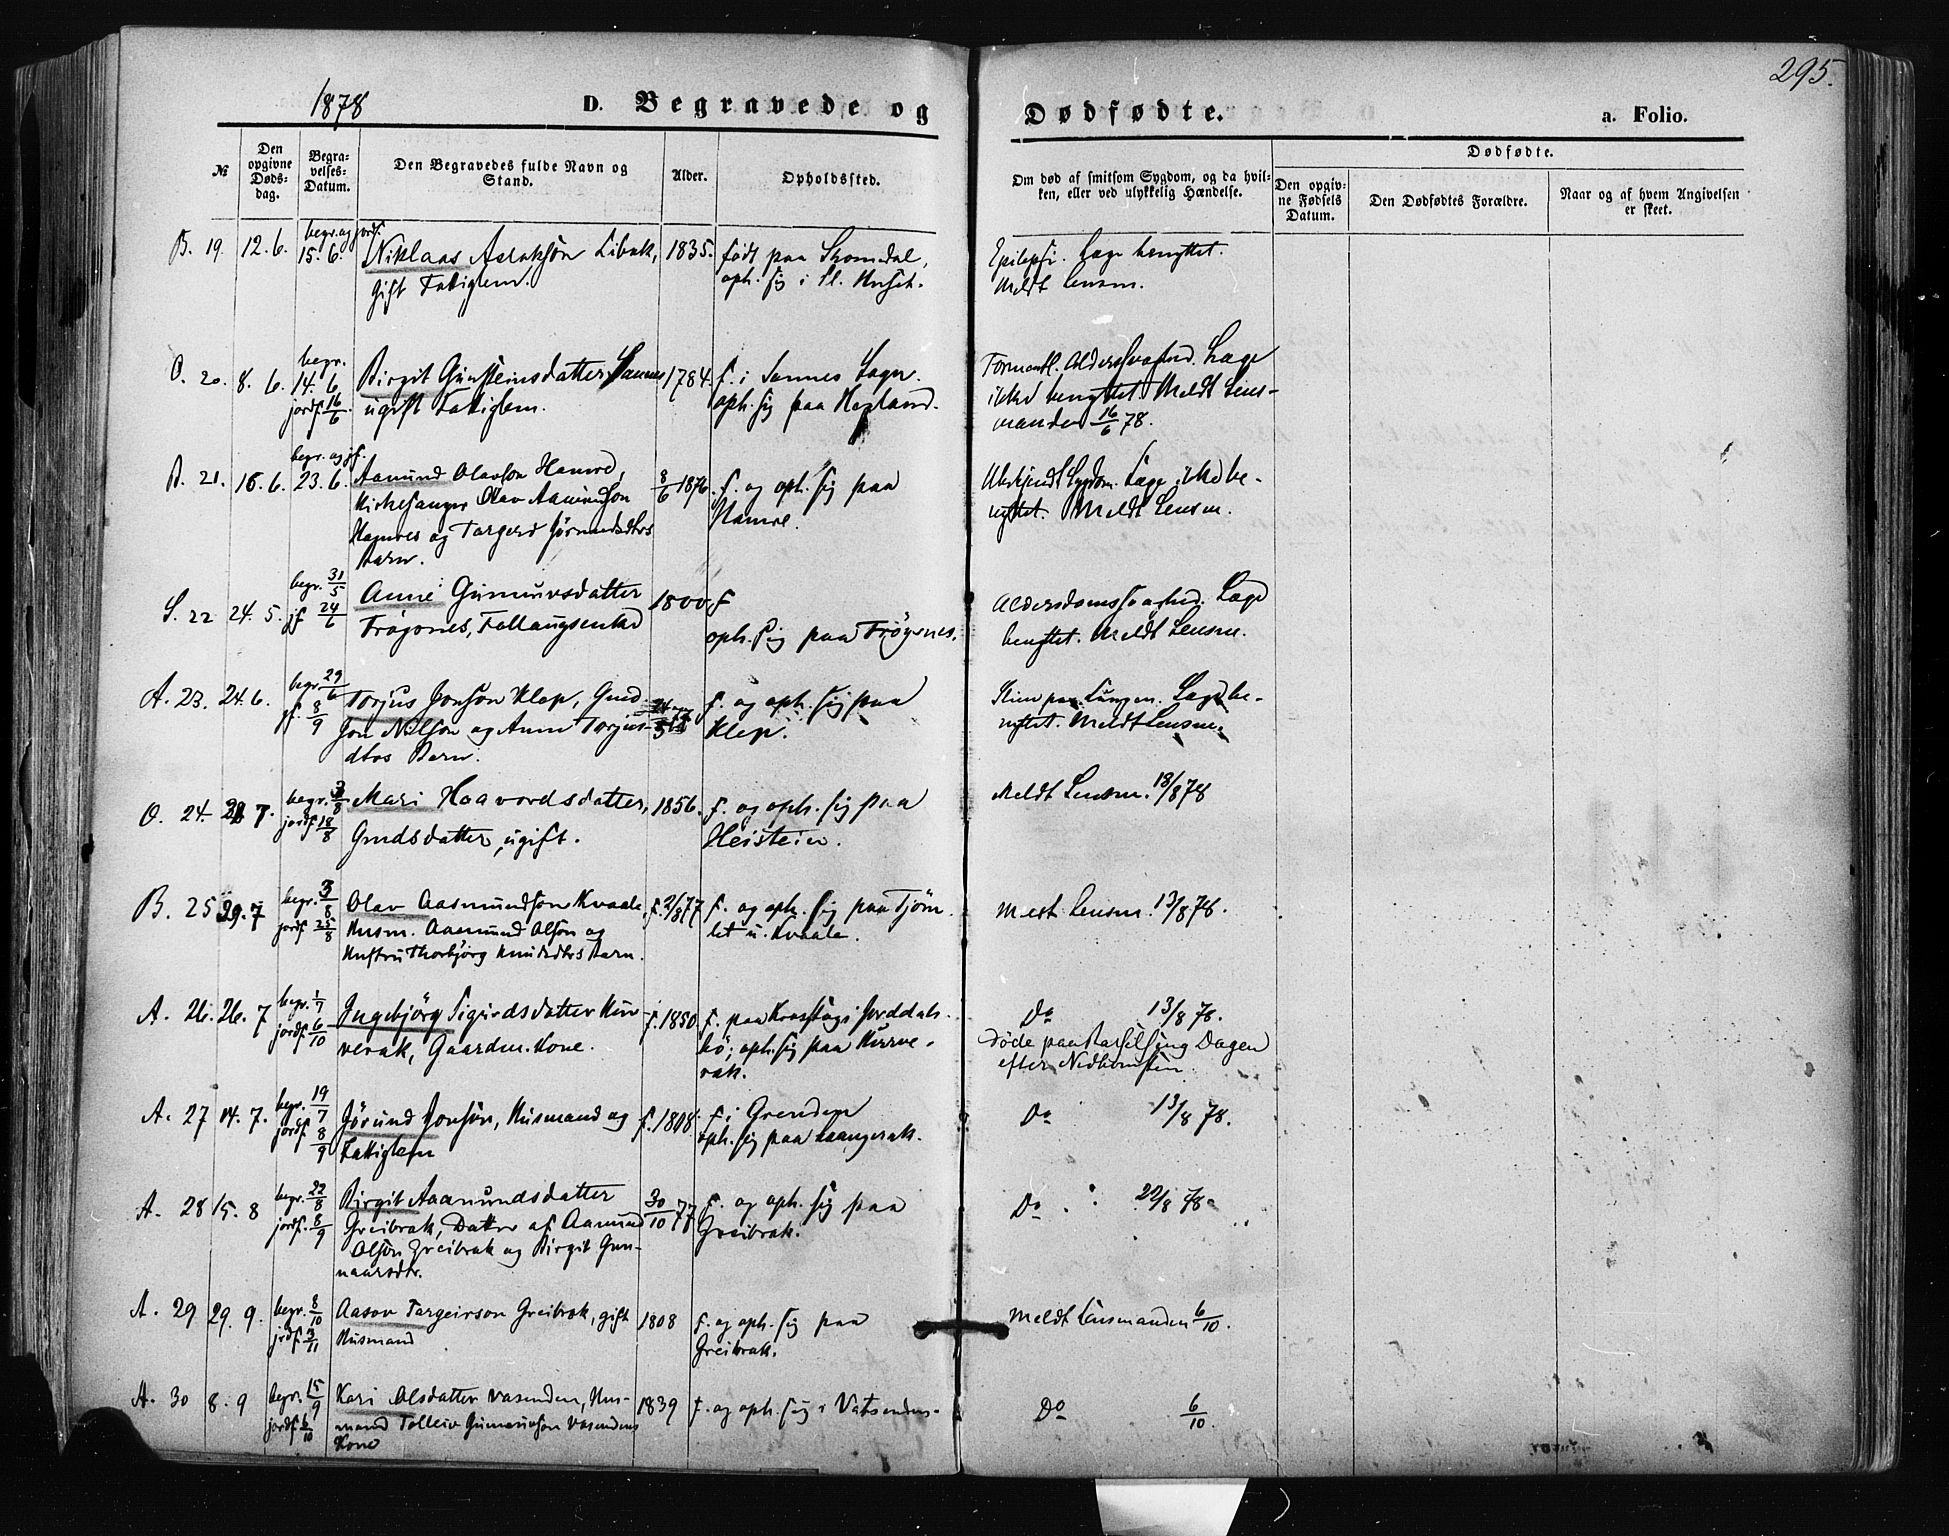 295.
1878 D. Begravede og Dødfødte. a. Folio.
№
Den opgivne Døds-dag.
Begra-velses-Datum.
Den Begravedes fulde Navn og Stand.
Alder.
Opholdssted.
Om død af smitsom Sygdom, og da hvil-
ken, eller ved ulykkelig Hændelse.
Dødfødte.
Den opgiv-ne Fødsels Datum.
Den Dødfødtes Forældre.
Naar og af hvem Angivelsen er skeet.
begr. og jordf.
B. 19. 12. 6. 15. 6. Niklaas Aslaksön 1835. født paa
gift Fattiglem. oph. sig i
Epilepsi. Læge benyttet.
Meldt Lensm.
begr.
O. 20. 8. 6. 14. 6 Birgit Gunsteinsdatter Sannes 1784. f. i Sannes Sogn.
jordf. 16/6 ugift Fattiglem. oph. sig paa
Læge
ikke benyttet. Meldt Lens-
manden 16/6 78.
begr. og jf.
B. 21. 15. 6. 23. 6. Aamund Olavson 8/6 1876. f. og oph. sig paa
Kirkesanger Olav Aamundson
og Targerd
Barn.
Ubekjendt Sygdom. Læge ikke be-
nyttet. Meldt Lensm.
begr. 31/5
S. 22 24. 5. jf 24/6 Anne Gunnuvsdatter 1800. f
Trögsnes, oph. sig paa Trögsnes.
Læge
benyttet. Meldt Lensm.
begr. 29/6
A. 23. 24. 6. jf. 8/9 Torjus Jonson Klep, Gmd f. og oph. sig paa
Jon Nilson og Anne Torjus- Klep.
dtrs Barn.
Læge be-
nyttet. Meldt Lensm.
begr. 3/8
O. 24. 7. jordf 18/8 Mari Haavordsdatter, 1856. f. og oph. sig paa
Gmdsdatter, ugift. Heistein.
Meldt Lensm. 18/8 78
begr. 3/8
B. 25 29. 7 jordf 25/8 Olav Aasmundson Kvaale f. 2/8 77 f. og oph. sig paa
Husm. Aasmund Olson og u. Kvaale.
Hustru Thorbjörg Knudsdtrs Barn.
Meldt Lensm. 13/8 78.
begr. 1/7
A. 26. 26. 7 jordf 6/10 Ingebjörg Sigurdsdatter f. 1850. f. paa
Gaardm. Kone. oph. sig paa
Do 13/8 78.
döde paa Barselseng Dagen
efter Nedkomsten.
begr. 19/7
A. 27 14. 7. jordf. 8/9 Jörund Jonson, Husmand og f. 1808. f. i Grenden
Fattiglem oph. sig paa Laangerak.
Do 13/8 78.
begr. 22/8
A. 28 15. 8 jordf. 8/9 Birgit Aamundsdatter 30/10 77 f. og oph. sig paa
Greibrak, Datter af Aamund Greibrak.
Olson Greibrak og Birgit Gun-
naarsdtr.
Do 22/8 78
begr. 8/10
A. 29 29. 9. jrdf. 3/11 Aasov Targeirson Greibrak, gift 1808 f. og oph. sig paa
Husmand Greibrak.
Meldt Lensmanden 6/10.
begr. 15/9
A. 30 8. 9 jordf. 6/10 Kari Olsdatter Vasenden, Hus- 1839 f. og oph. sig i
mand Tolleiv Gunnarson Vasendens
Kone
Do 6/10.